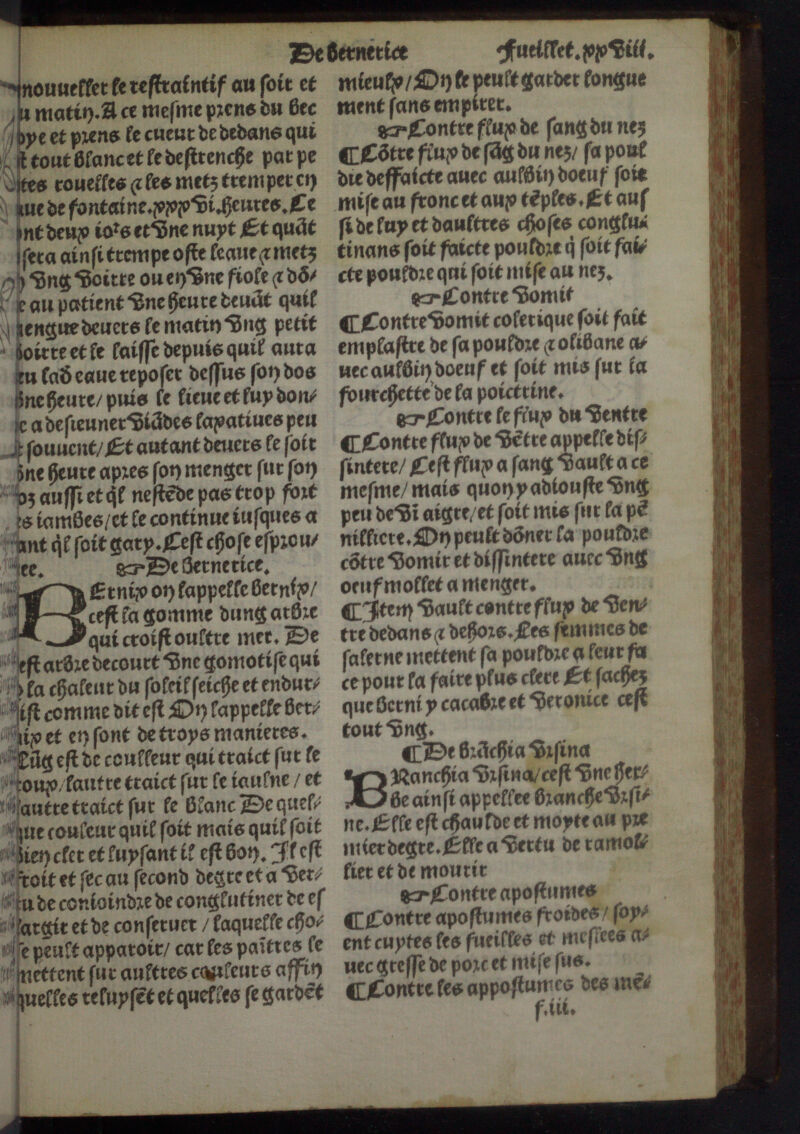 De bernerice
Fueillet.xxviii.
nouueller le restraintif au soir et
matin. A ce mesme prens du bec
et prens le cueur de dedans qui
tout blanc et le destrenche par pe
tes rouelles ⁊ les metz tremper en
aue de fontaine.xxxvi.heures. Ce
deux iors et vne nuyt Et quãt
sera ainsi trempe oste leaue ⁊ metz
vng voirre ou en vne fiole ⁊ dõ/
au patient vne heure deuãt quil
deuers le matin vng petit
voirre et le laisse depuis quil aura
lad eaue reposer dessus son dos
vne heure/ puis le lieue et luy don/
a desieuner viãdes laxatiues peu
souuent/ Et autant deuers le soir
vne heure apres son menger sur son
aussi et ql nestẽde pas trop fort
iambes/ et le continue iusques a
ql soit gary. Cest chose esprou/
ee. De bernerice.
BErnix on lappelle bernix/
cest la gomme dung arbre
qui croist oultre mer. De
est arbre decourt vne gomotise qui
la chaleur du soleil seiche et endur/
ist comme dit est On lappelle ber/
nix et en sont de troys manieres.
Lũg est de coulleur qui traict sur le
roux/ lautre traict sur le iaulne / et
lautre traict sur le blanc De quel/
que couleur quil soit mais quil soit
bien cler et luysant il est bon. Il est
froit et sec au second degre et a ver/
tu de conioindre de conglutiner de es
largir et de conseruer / laquelle cho/
se peult apparoir/ car les paĩtres le
mettent sur aultres couleurs affin
quelles reluysẽt et quelles se gardẽt
mieulx/ On le peult garder longue
ment sans empirer.
Contre flux de sang du nez
¶ Cõtre flux de sãg du nez/ sa poul
dre deffaicte auec aulbin doeuf soit
mise au fronc et aux tẽples. Et aus
si de luy et daultres choses conglu/
tinans soit faicte pouldre q soit fai/
cte pouldre qui soit mise au nez.
Contre vomit
¶ Contre vomit colerique soit fait
emplastre de sa pouldre ⁊ olibane a/
uec aulbin doeuf et soit mis sur la
fourchette de la poictrine.
Contre le flux du ventre
¶ Contre flux de vẽtre appelle dis/
sintere/ Cest flux a sang vault a ce
mesme/ mais quon y adiouste vng
peu de vĩ aigre/ et soit mis sur la pẽ
nilliere. On peult dõner la pouldre
cõtre vomir et dissintere auec vng
oeuf mollet a menger.
¶ Item vault contre flux de ven/
tre dedans ⁊ dehors. Les femmes de
salerne mettent sa pouldre a leur fa
ce pour la faire plus clere Et sachez
que berni y cacabre et veronice cest
tout vng.
¶ De brãchia vrsina
BRanchia vrsina/ cest vne her/
be ainsi appellee branche vrsi/
ne. Elle est chaulde et moyte au pre
mier degre. Elle a vertu de ramol/
lier et de mourir
Contre apostumes
¶ Contre apostumes froides/ soy/
ent cuytes les fueilles et meslees a/
uec gresse de porc et mise sus.
¶ Contre les appostumes des mẽ/
f.iii.